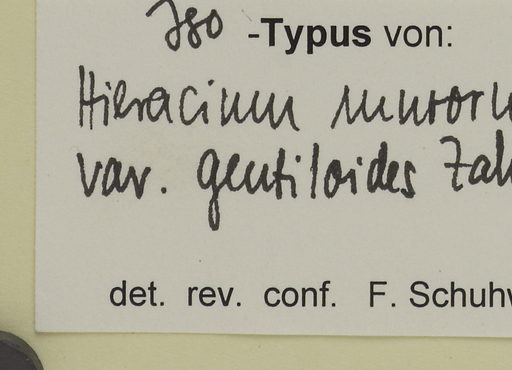 Iso -Typus von:
Hieracium
var. gentiloides Zah
det. rev. conf. F. Schuh